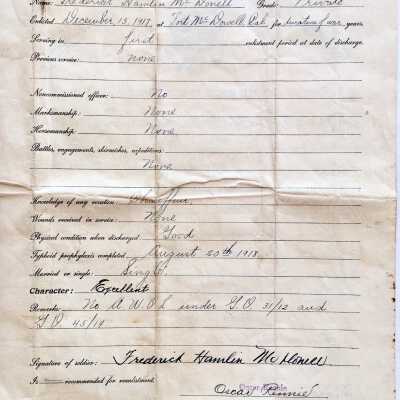 Name: Frederick Hamlin McDonell Grade: Private
Enlisted December 15, 1917, at Fort McDowell Cal for duration of war years.
Serving in first enlistment period at date of discharge.
Previous service: none
Noncommissioned officer: No
Marksmanship: None
Horsemanship: None
Battles, engagements, skirmishes, expeditions:
None
Knowledge of any vocation: Chauffeur
Wounds received in service: None
Physical condition when discharged: Good
Typhoid prophylaxis completed August 20th 1918
Married or single: Single
Character: Excellent
Remarks: No A.W.O.L under G.O. 31/12 and
G.O. 45/19
Signature of soldier: Frederick Hamlin McDonell
Is recommended for reenlistment.
Oscar Rennie